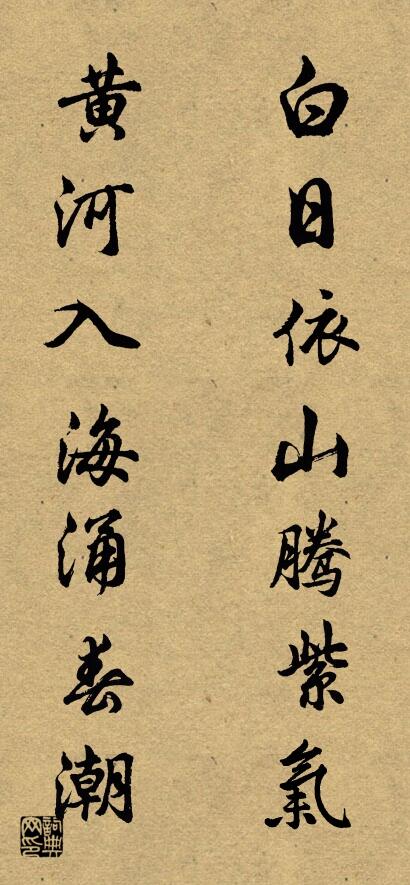 白日依山騰紫氣
黄河入海涌春潮
詞典网印